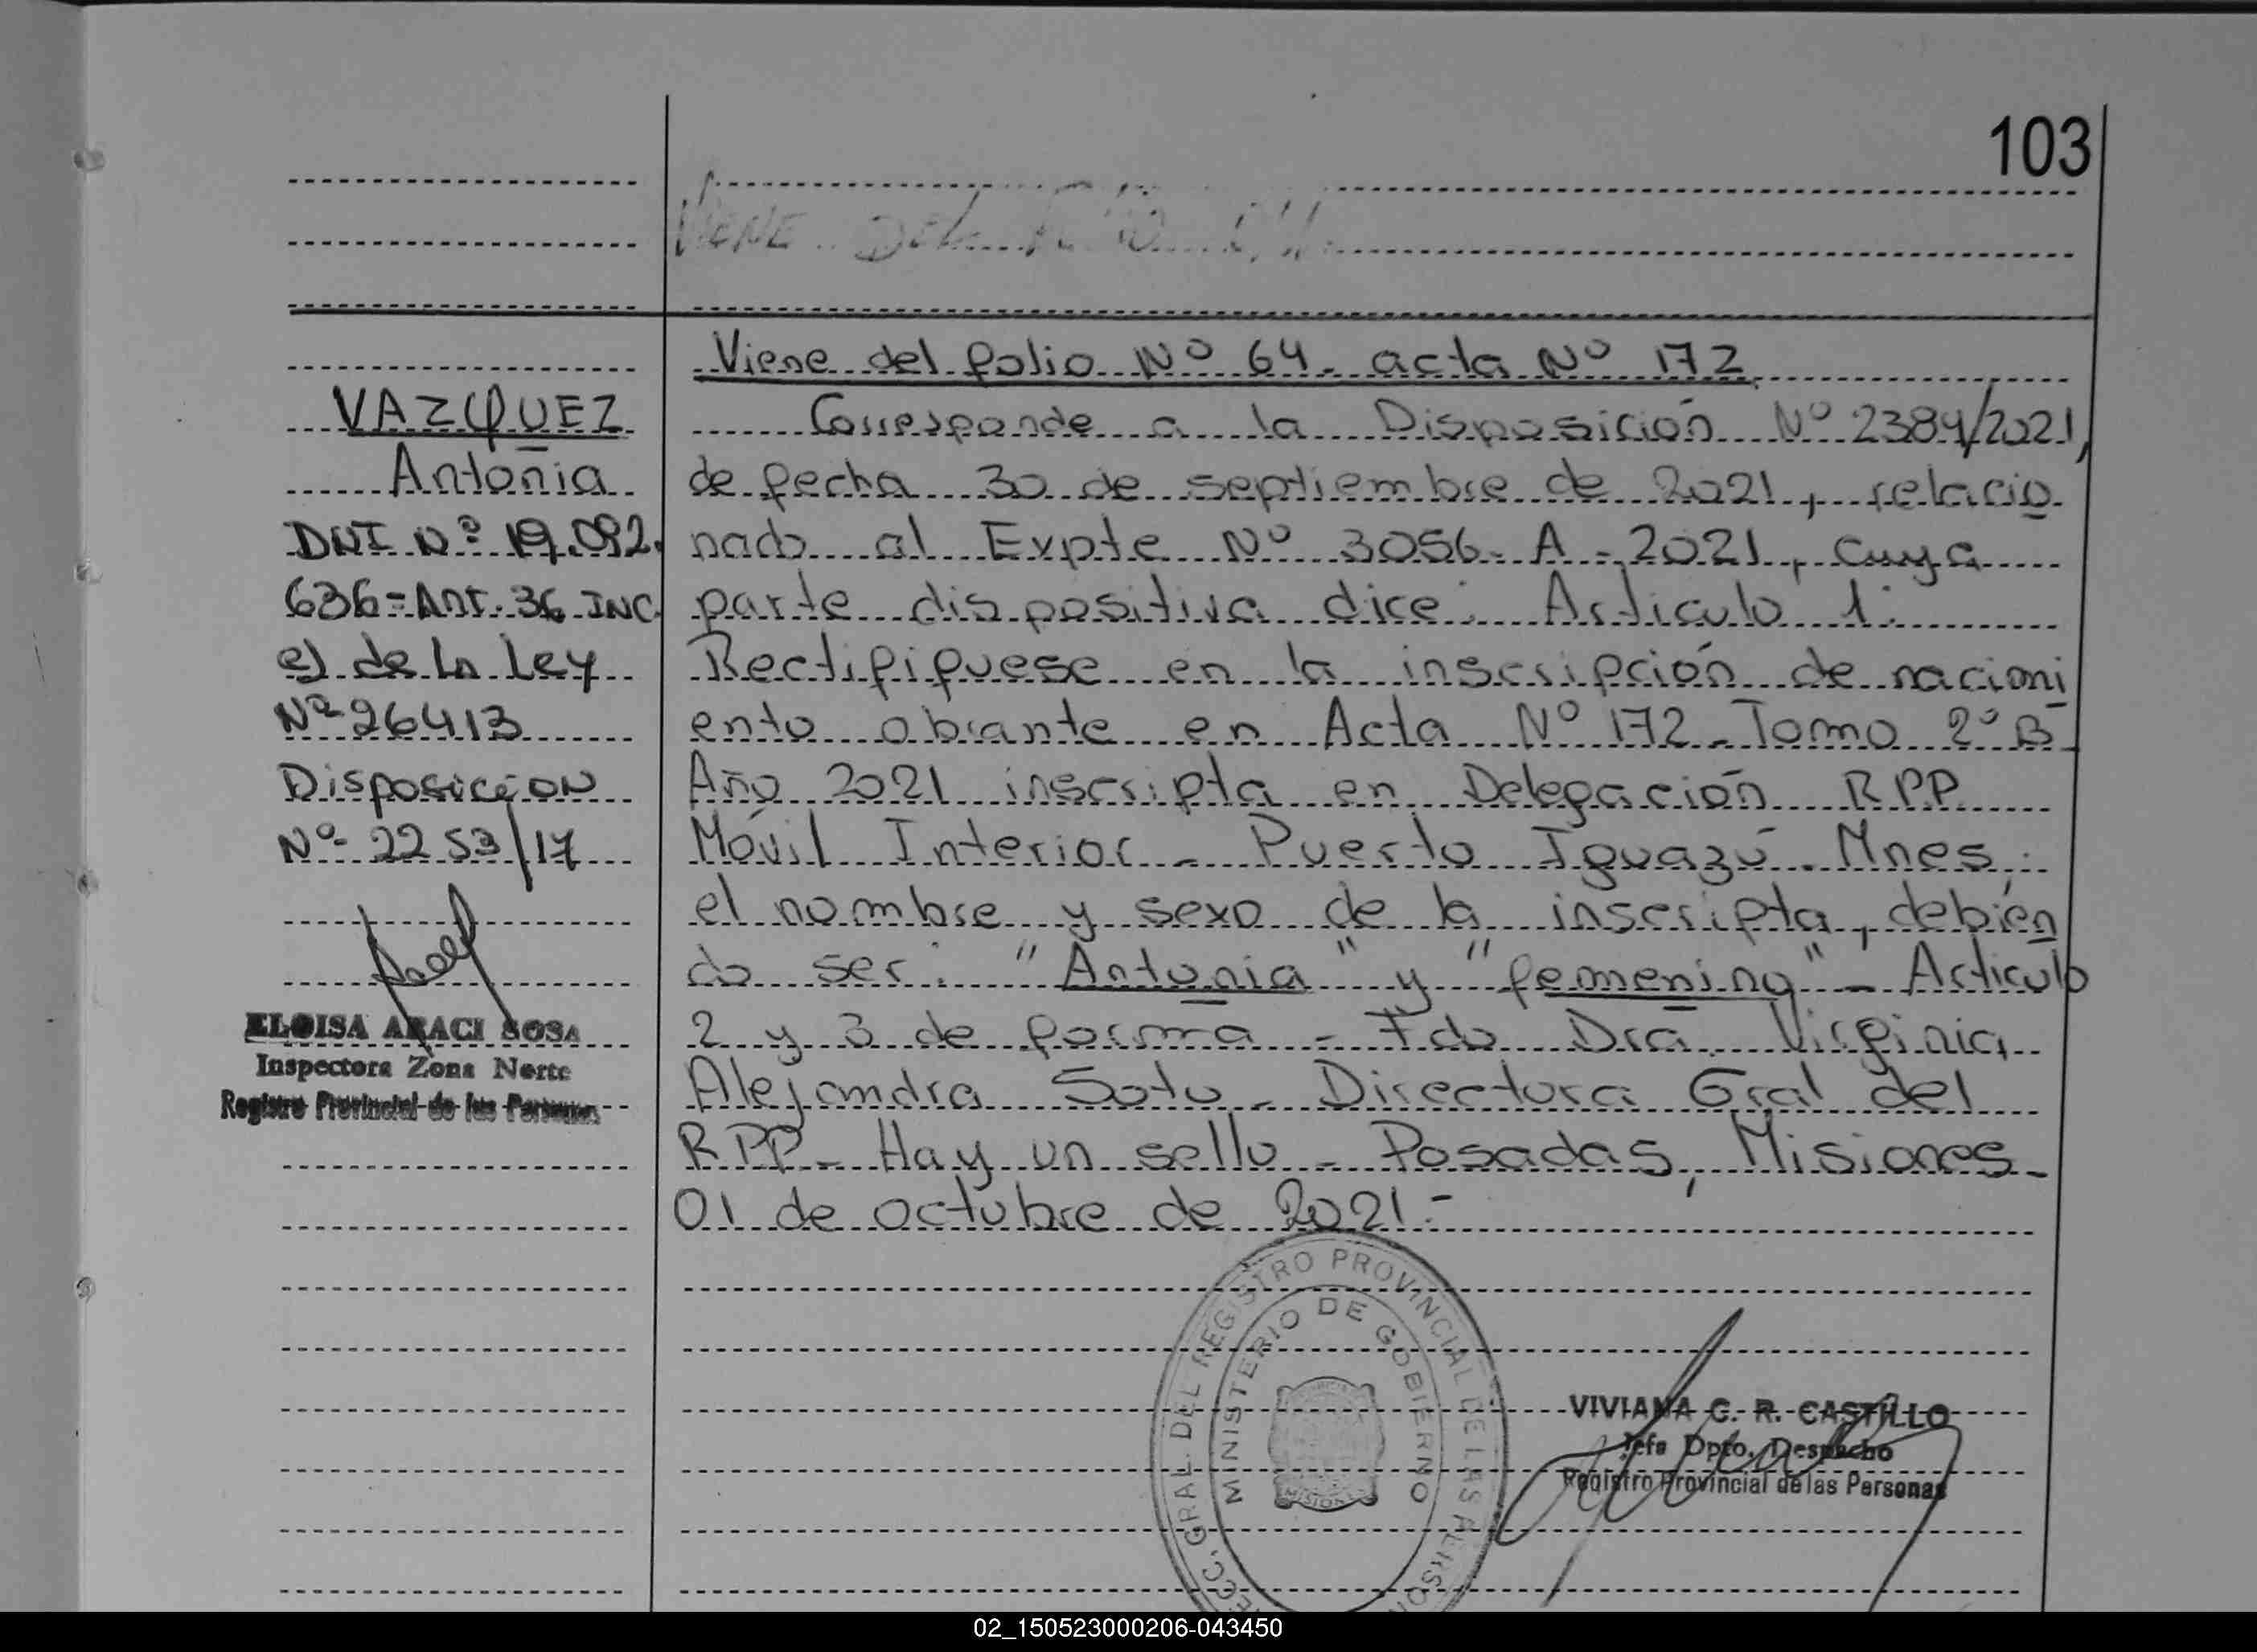 103
Viene del
Viene del folio Nº 64 - acta Nº 172
VAZQUEZ
Antonia
DNI Nº 19.092.
636 = Art. 36 INC.
e) de la Ley
Nº 26413
Disposición
Nº 2253/17
ELOISA ARACI SOSA
Inspectora Zona Norte
Registro Provincial de las Personas
Corresponde a la Disposición Nº 2384/2021,
de fecha 30 de septiembre de 2021, relacio
nado al Expte Nº 3056- A - 2021, cuya
parte dispositiva dice: Artículo 1:
Rectifíquese en la inscripción de nacimi
ento obrante en Acta Nº 172 - Tomo 2º B-
Año 2021 inscripta en Delegación RPP
Móvil Interior - Puerto Iguazú - Mnes,
el nombre y sexo de la inscripta, debien
do ser: "Antonia" y "femenino" - Artículo
2 y 3 de forma - Fdo Dra. Virginia
Alejandra Soto - Directora Gral del
RPP - Hay un sello - Posadas, Misiones -
01 de octubre de 2021.-
DIRECC. GRAL. DEL REGISTRO PROVINCIAL DE LAS PERSONAS
MINISTERIO DE GOBIERNO
MISIONES
VIVIANA C. R. CASTILLO
Jefa Dpto. Despacho
Registro Provincial de las Personas
02_150523000206-043450